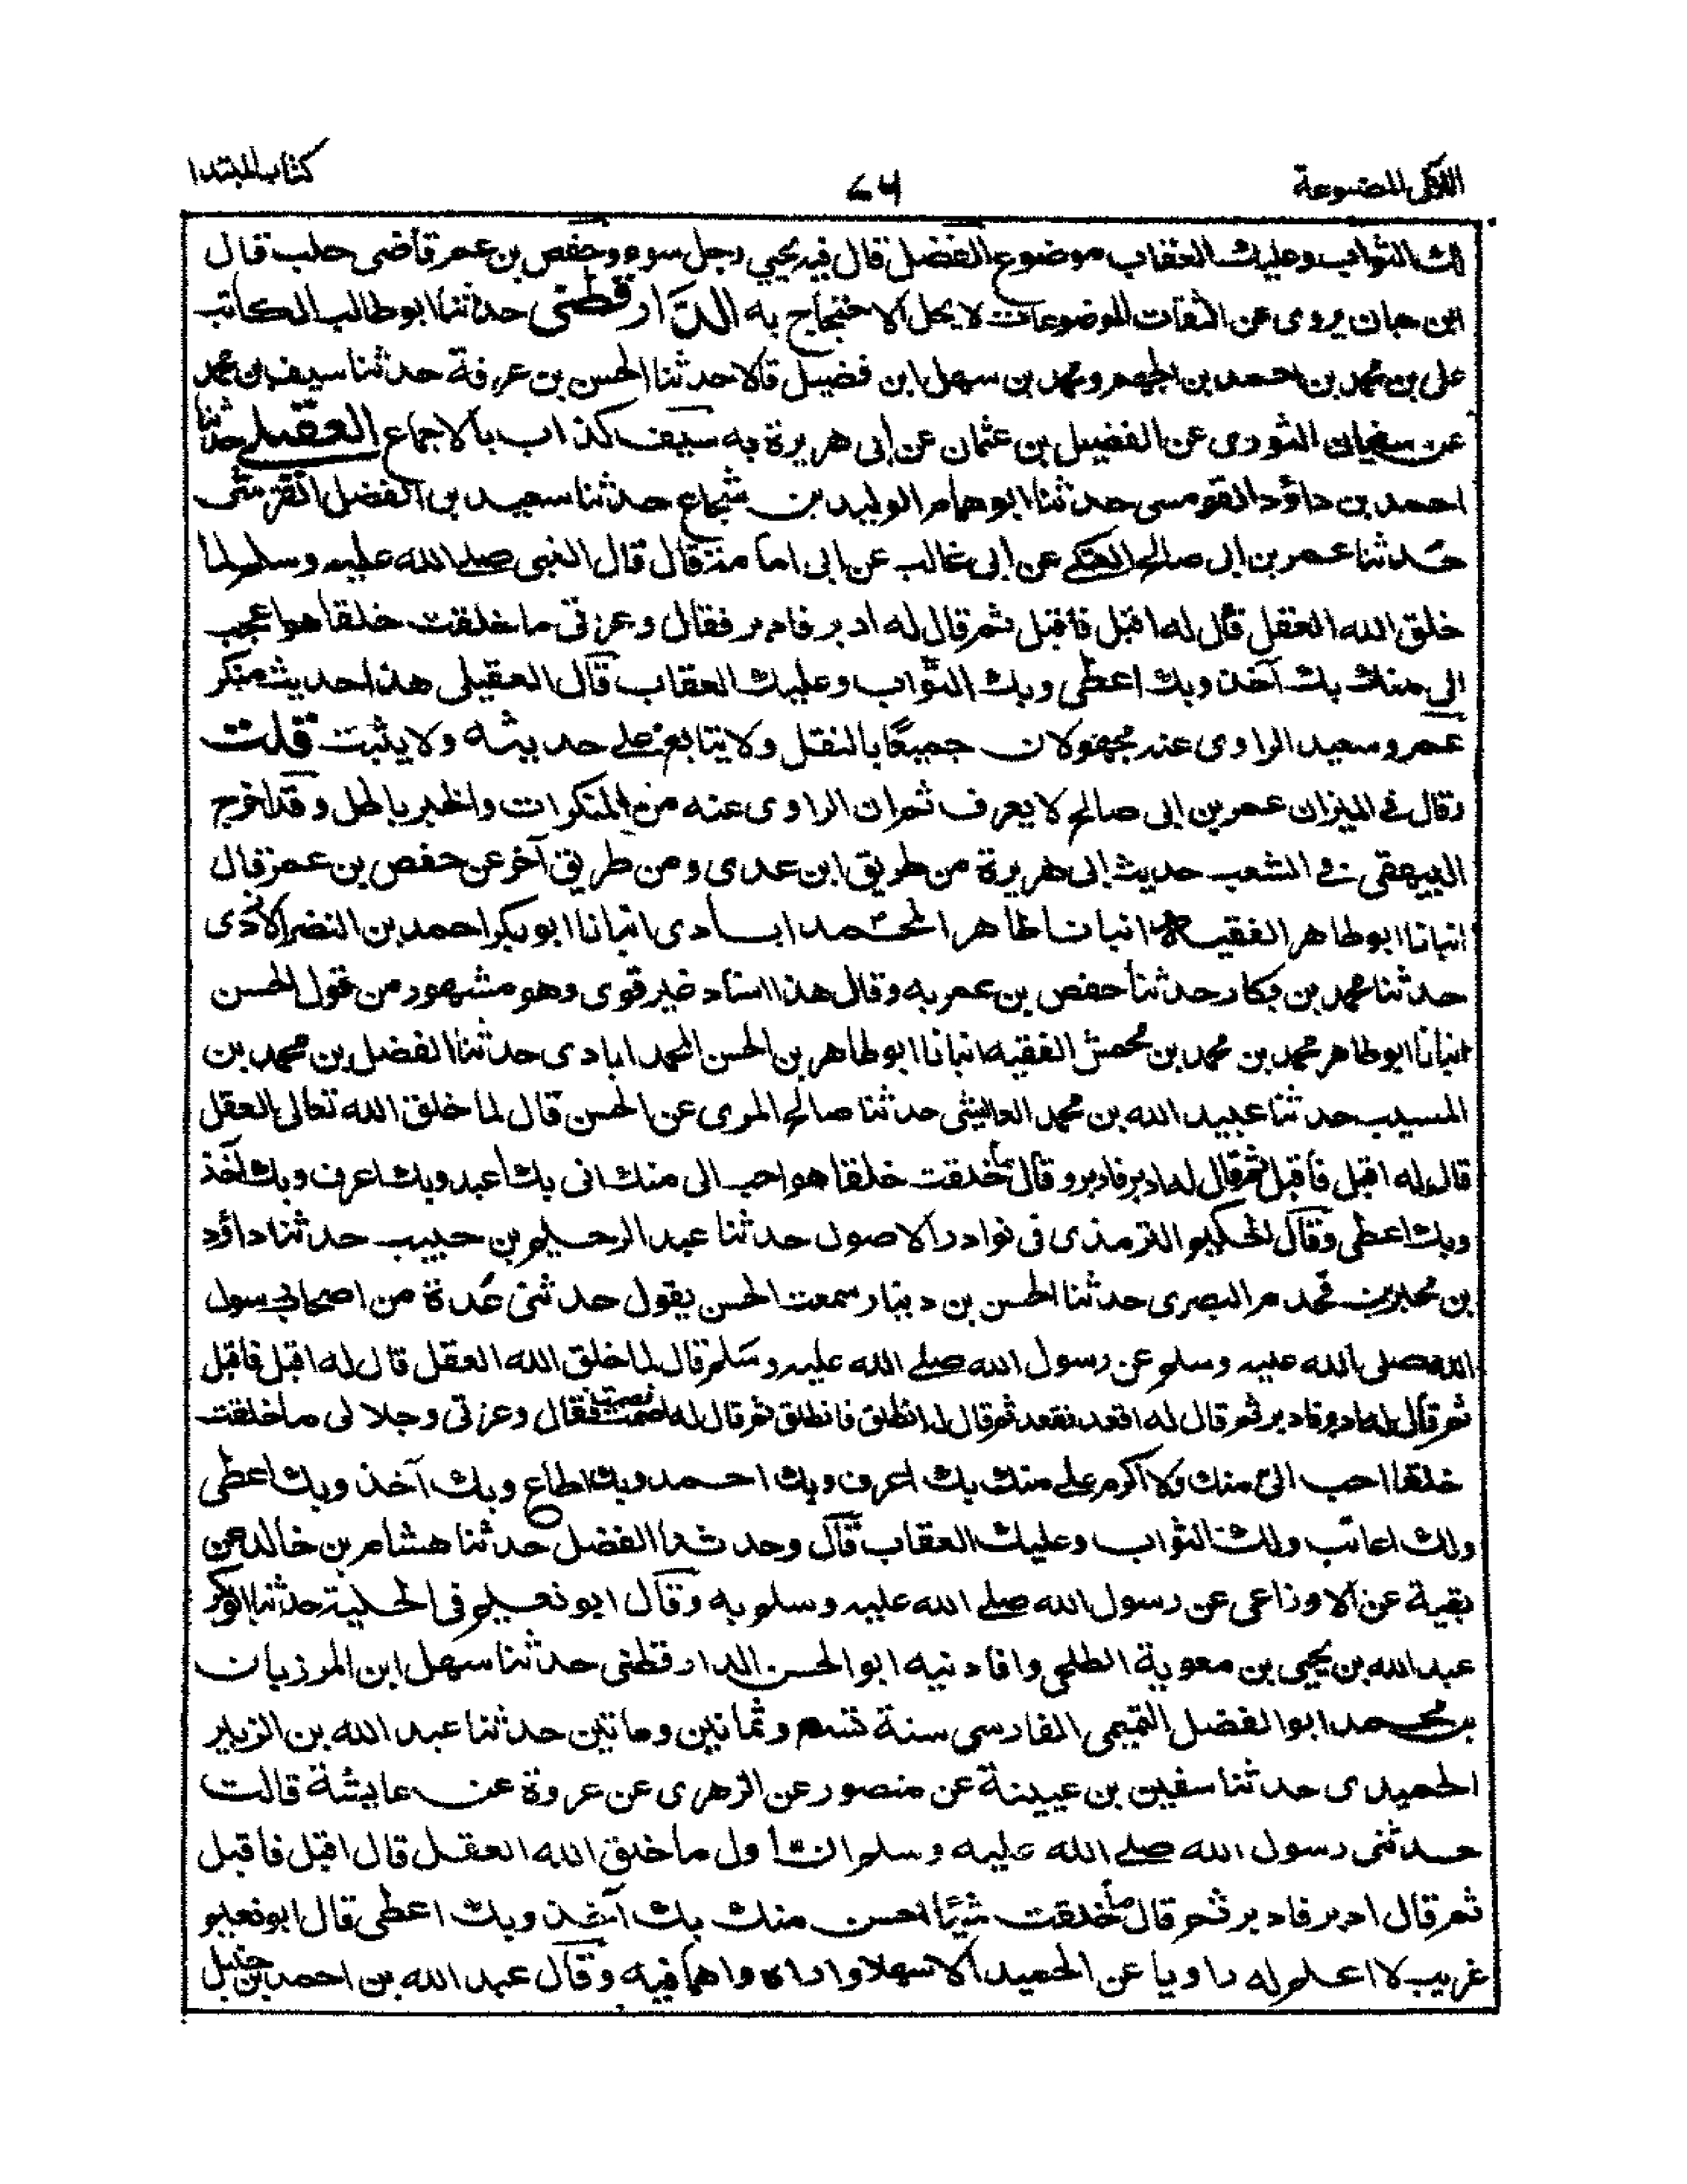 اللآلى المصنوعة
٦٧
كتاب المبتدا
لك الثواب وعليك العقاب موضوع الفضل قال فيه يحيي رجل سوء وحفص بن عمر قاضى حلب قال
ابن حبان يروى عن الثقات الموضوعات لا يحل الاحتجاج به الدارقطنى حدثنا ابو طالب الكاتب
على بن محمد بن احمد بن الجهم ومحمد بن سهل ابن فضيل قالا حدثنا الحسن بن عرفة حدثنا سيف بن محمد
عن سفيان الثورى عن الفضيل بن عثمان عن ابى هريرة به سيف كذاب بالاجماع العقيلے حدثنا
احمد بن داؤد القومسى حدثنا ابو همام الوليد بن شجاع حدثنا سعيد بن الفضل القرشى
حدثنا عمر بن ابى صالح العتكے عن ابى غالب عن ابى امامة قال قال النبى صلے الله عليه وسلم لما
خلق الله العقل قال له اقبل فأقبل ثم قال له ادبر فادبر فقال وعزتى ما خلقت خلقا هو اعجب
الى منك بك آخذ وبك اعطى وبك الثواب وعليك العقاب قال العقيلى هذا حديث منكر
عمر وسعيد الراوى عنه مجهولان جميعًا بالنقل ولا يتابع علے حديثه ولا يثبت قلت
وقال فے الميزان عمر بن ابى صالح لا يعرف ثم ان الراوى عنه من المنكرات والخبر باطل وقد اخرج
البيهقى فے الشعب حديث ابى هريرة من طريق ابن عدى ومن طريق آخر عن حفص بن عمر قال
انبانا ابو طاهر الفقيه انبانا طاهر المحمد ابادى انبانا ابو بكر احمد بن النضر الازدى
حدثنا محمد بن بكار حدثنا حفص بن عمر به وقال هذا اسناد غير قوى وهو مشهور من قول الحسن
انبانا ابو طاهر محمد بن محمد بن محمش الفقيه انبانا ابو طاهر بن الحسن المحمد ابادى حدثنا الفضل بن محمد بن
المسيب حدثنا عبيد الله بن محمد العايشى حدثنا صالح المرى عن الحسن قال لما خلق الله تعالى العقل
قال له اقبل فأقبل ثم قال له ادبر فادبر وقال ما خلقت خلقا هو احب الى منك انى بك اعبد وبك اعرف وبك آخذ
وبك اعطى وقال الحكيم الترمذى فى نوادر الاصول حدثنا عبد الرحيم بن حبيب حدثنا داؤد
بن محبر بن قحدم البصرى حدثنا الحسن بن دينار سمعت الحسن يقول حدثنى عدة من اصحاب رسول
الله صلى الله عليه وسلم عن رسول الله صلے الله عليه وسلم قال لما خلق الله العقل قال له اقبل فاقبل
ثم قال له ادبر فادبر ثم قال له اقعد فقعد ثم قال له انطلق فانطلق ثم قال له اصمت فصمت فقال وعزتى وجلالى ما خلقت
خلقا احب الى منك ولا اكرم علے منك بك اعرف وبك احمد وبك اطاع وبك آخذ وبك اعطى
ولك اعاتب ولك الثواب وعليك العقاب قال وحدثنا الفضل حدثنا هشام بن خالد عن
بقية عن الاوزاعى عن رسول الله صلے الله عليه وسلم به وقال ابو نعيم فى الحلية حدثنا ابو بكر
عبد الله بن يحيى بن معوية الطلحى وافادنيه ابو الحسن الدارقطنى حدثنا سهل ابن المرزبان
بن محمد ابو الفضل التميمى الفارسى سنة تسع وثمانين ومائتين حدثنا عبد الله بن الزبير
الحميدى حدثنا سفين بن عيينة عن منصور عن الزهرى عن عروة عن عايشة قالت
حدثنى رسول الله صلے الله عليه وسلم ان اول ما خلق الله العقل قال اقبل فاقبل
ثم قال ادبر فادبر ثم قال ما خلقت شيًا احسن منك بك آخذ وبك اعطى قال ابو نعيم
غريب لا اعلم له راويا عن الحميد الا سهلا واراه واهما فيه وقال عبد الله بن احمد بن حنبل